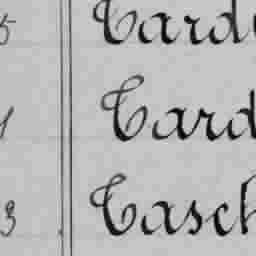 5 Card
1 Card
3 Casch